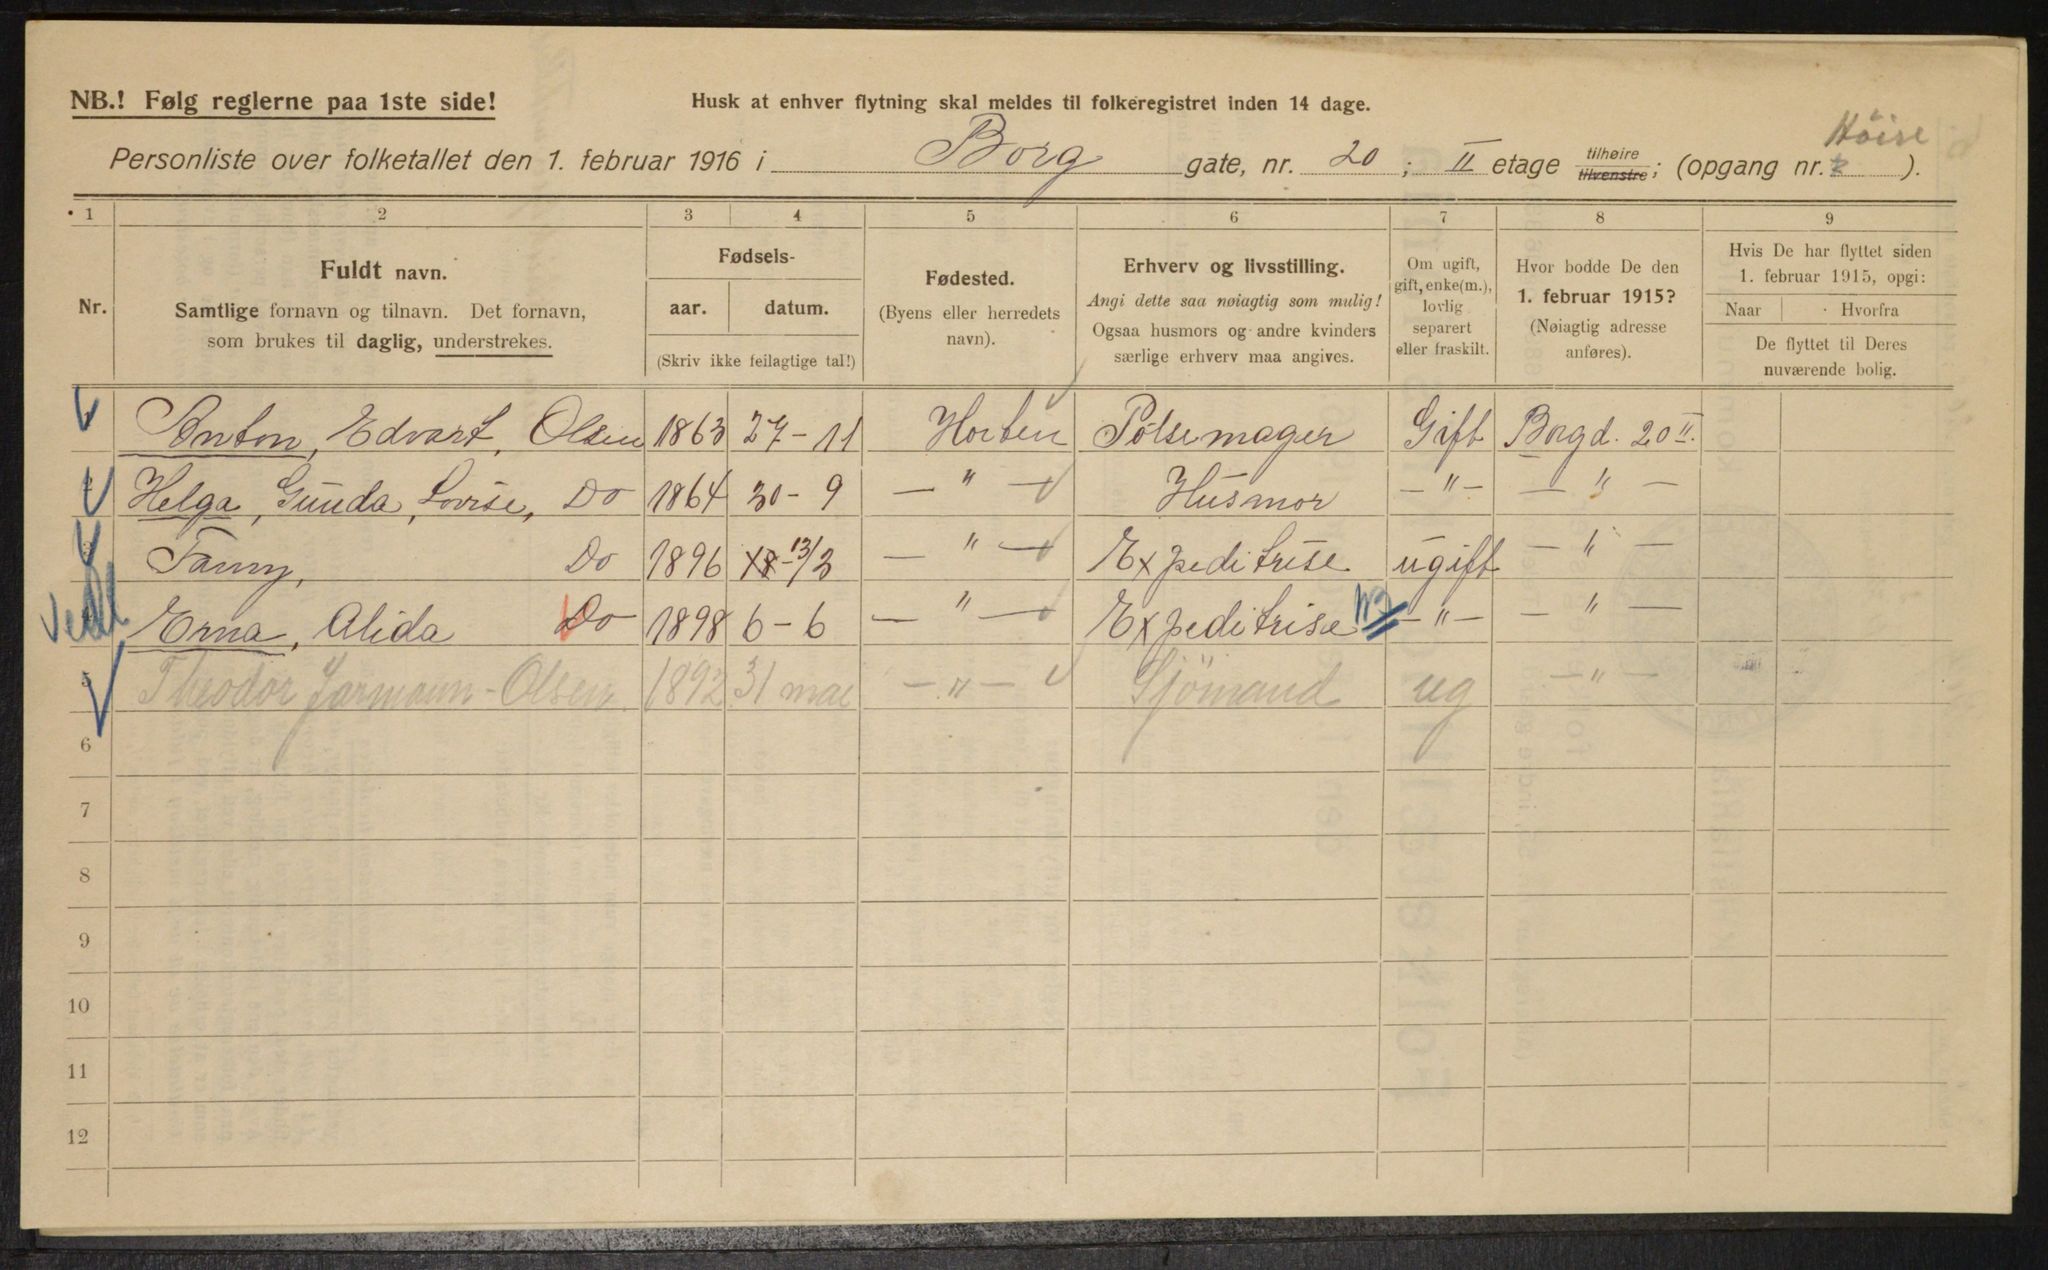 NB.! Følg reglerne paa 1ste side!
Husk at enhver flytning skal meldes til folkeregistret inden 14 dage.
Personliste over folketallet den 1. februar 1916 i Borg gate, nr. 20 ; II etage tilhøire tilvenstre; (opgang nr. Höire ).
1 2 3 4 5 6 7 8 9
Nr.
Fuldt navn.
Samtlige fornavn og tilnavn. Det fornavn,
som brukes til daglig, understrekes.
Fødsels-
aar. datum.
(Skriv ikke feilagtige tal!)
Fødested.
(Byens eller herredets
navn).
Erhverv og livsstilling.
Angi dette saa nøiagtig som mulig!
Ogsaa husmors og andre kvinders
særlige erhverv maa angives.
Om ugift,
gift, enke(m.),
lovlig
separert
eller fraskilt.
Hvor bodde De den
1. februar 1915?
(Nøiagtig adresse
anføres).
Hvis De har flyttet siden
1. februar 1915, opgi:
Naar Hvorfra
De flyttet til Deres
nuværende bolig.
Anton, Edvart, Olsen 1863 27-11 Horten Pölsemager Gift Borgd. 20 II.
Helga, Gunda, Lovise, Do 1864 30-9 — " — Husmor — " — — " —
3 Fanny, Do 1896 13/3 — " — Expeditrise ugift — " —
Erna, Alida Do 1898 6-6 — " — Expeditrise — " — — " —
5 Theodor Jarmann-Olsen 1892 31 mai — " — Sjömand ug — " —
6
7
8
9
10
11
12